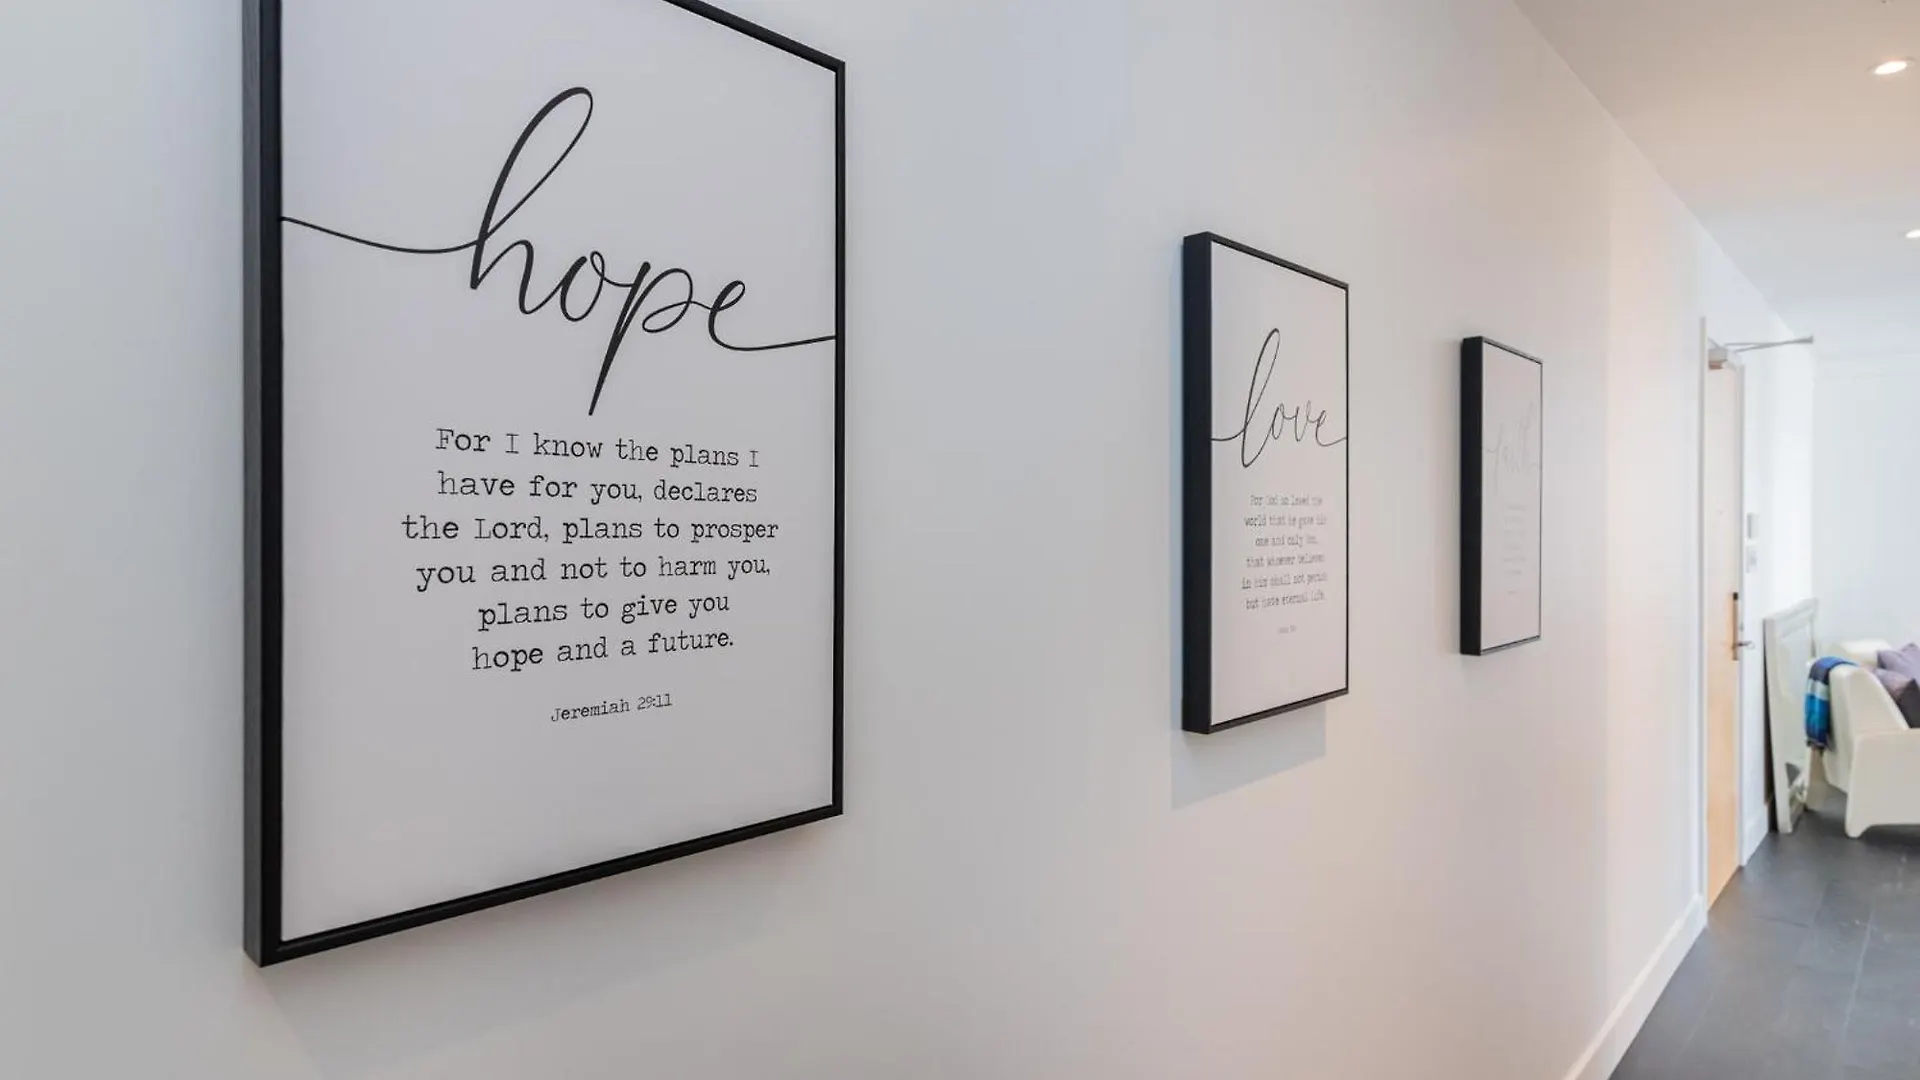 hope
For I know the plans I
have for you, declares
the Lord, plans to prosper
you and not to harm you,
plans to give you
hope and a future.
Jeremiah 29:11
love
For God so loved the
world that he gave his
one and only Son,
that whoever believes
in him shall not perish
but have eternal life.
faith